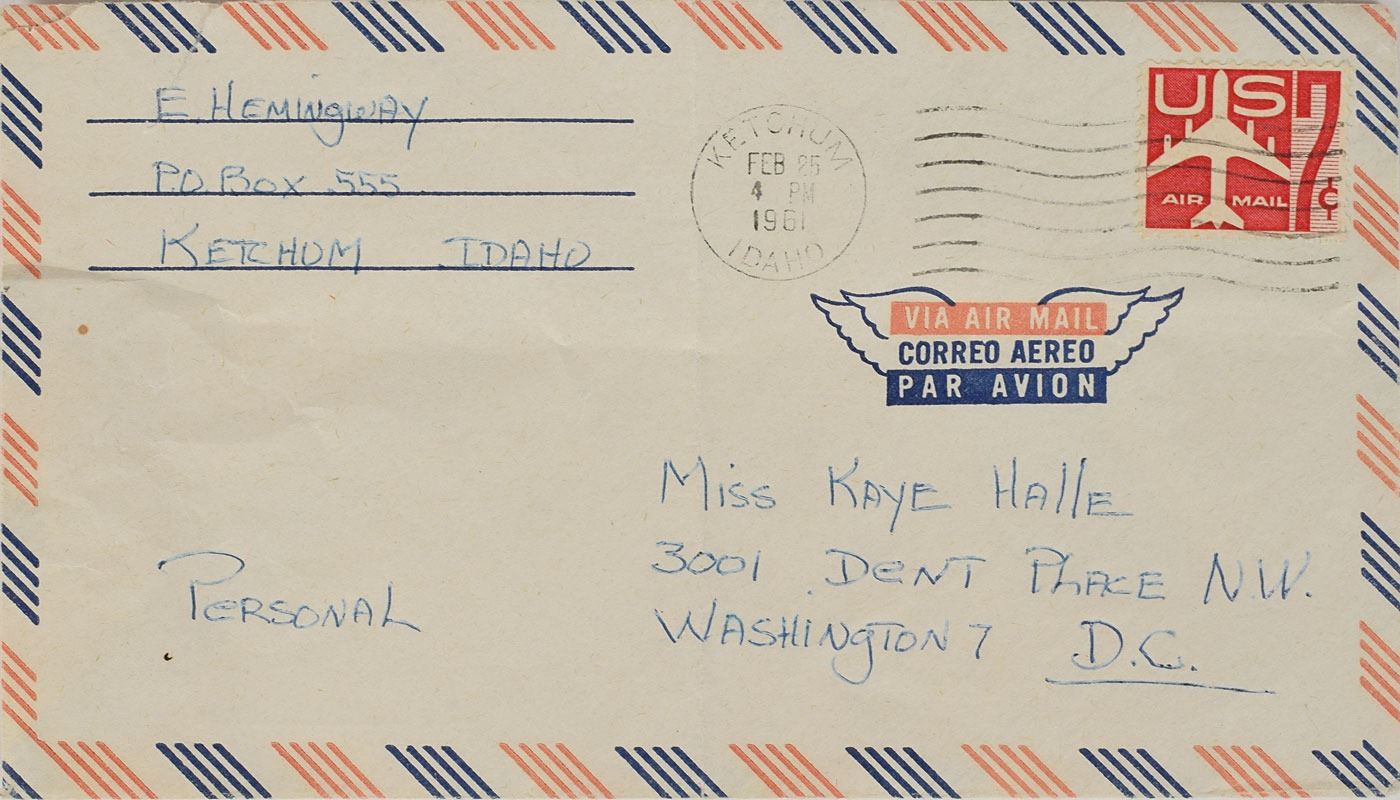 E. Hemingway
P.O. Box 555
Ketchum Idaho
KETCHUM
FEB 25
4 PM
1961
IDAHO
US 7¢
AIR MAIL
VIA AIR MAIL
CORREO AEREO
PAR AVION
Miss Kaye Halle
3001 Dent Place N.W.
Washington 7 D.C.
Personal